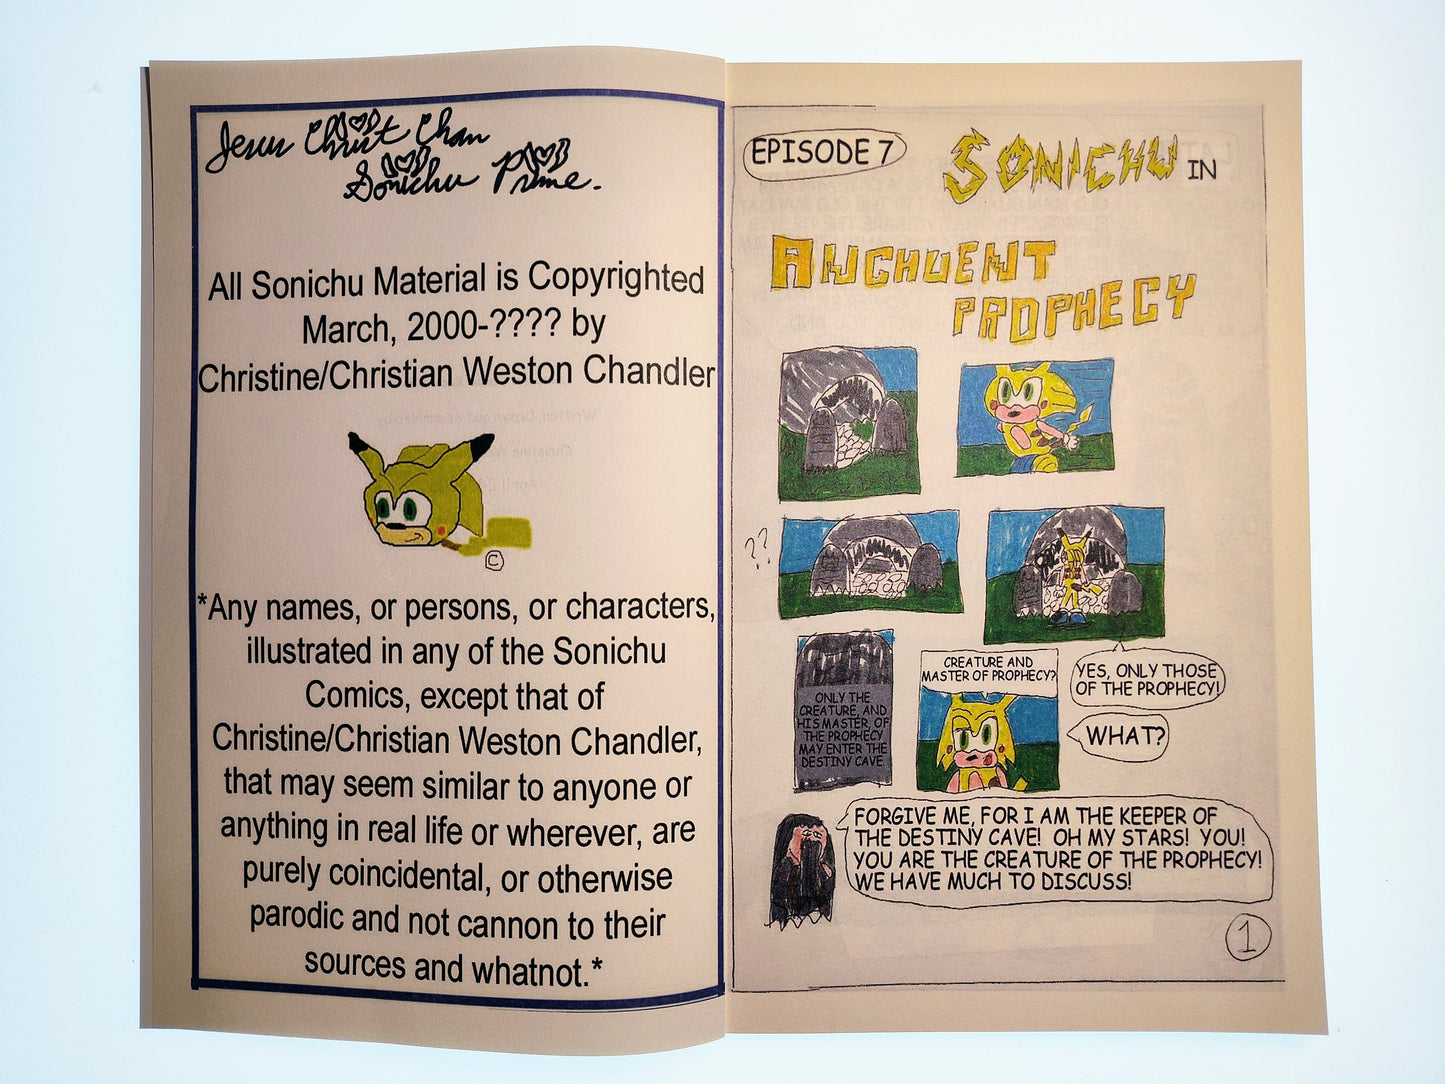 Jesus Christ Chan
Sonichu Prime.
All Sonichu Material is Copyrighted
March, 2000-???? by
Christine/Christian Weston Chandler
©
*Any names, or persons, or characters,
illustrated in any of the Sonichu
Comics, except that of
Christine/Christian Weston Chandler,
that may seem similar to anyone or
anything in real life or wherever, are
purely coincidental, or otherwise
parodic and not cannon to their
sources and whatnot.*
EPISODE 7
SONICHU IN
ANCHUENT
PROPHECY
??
ONLY THE
CREATURE, AND
HIS MASTER, OF
THE PROPHECY
MAY ENTER THE
DESTINY CAVE.
CREATURE AND
MASTER OF PROPHECY?
YES, ONLY THOSE
OF THE PROPHECY!
WHAT?
FORGIVE ME, FOR I AM THE KEEPER OF
THE DESTINY CAVE! OH MY STARS! YOU!
YOU ARE THE CREATURE OF THE PROPHECY!
WE HAVE MUCH TO DISCUSS!
1